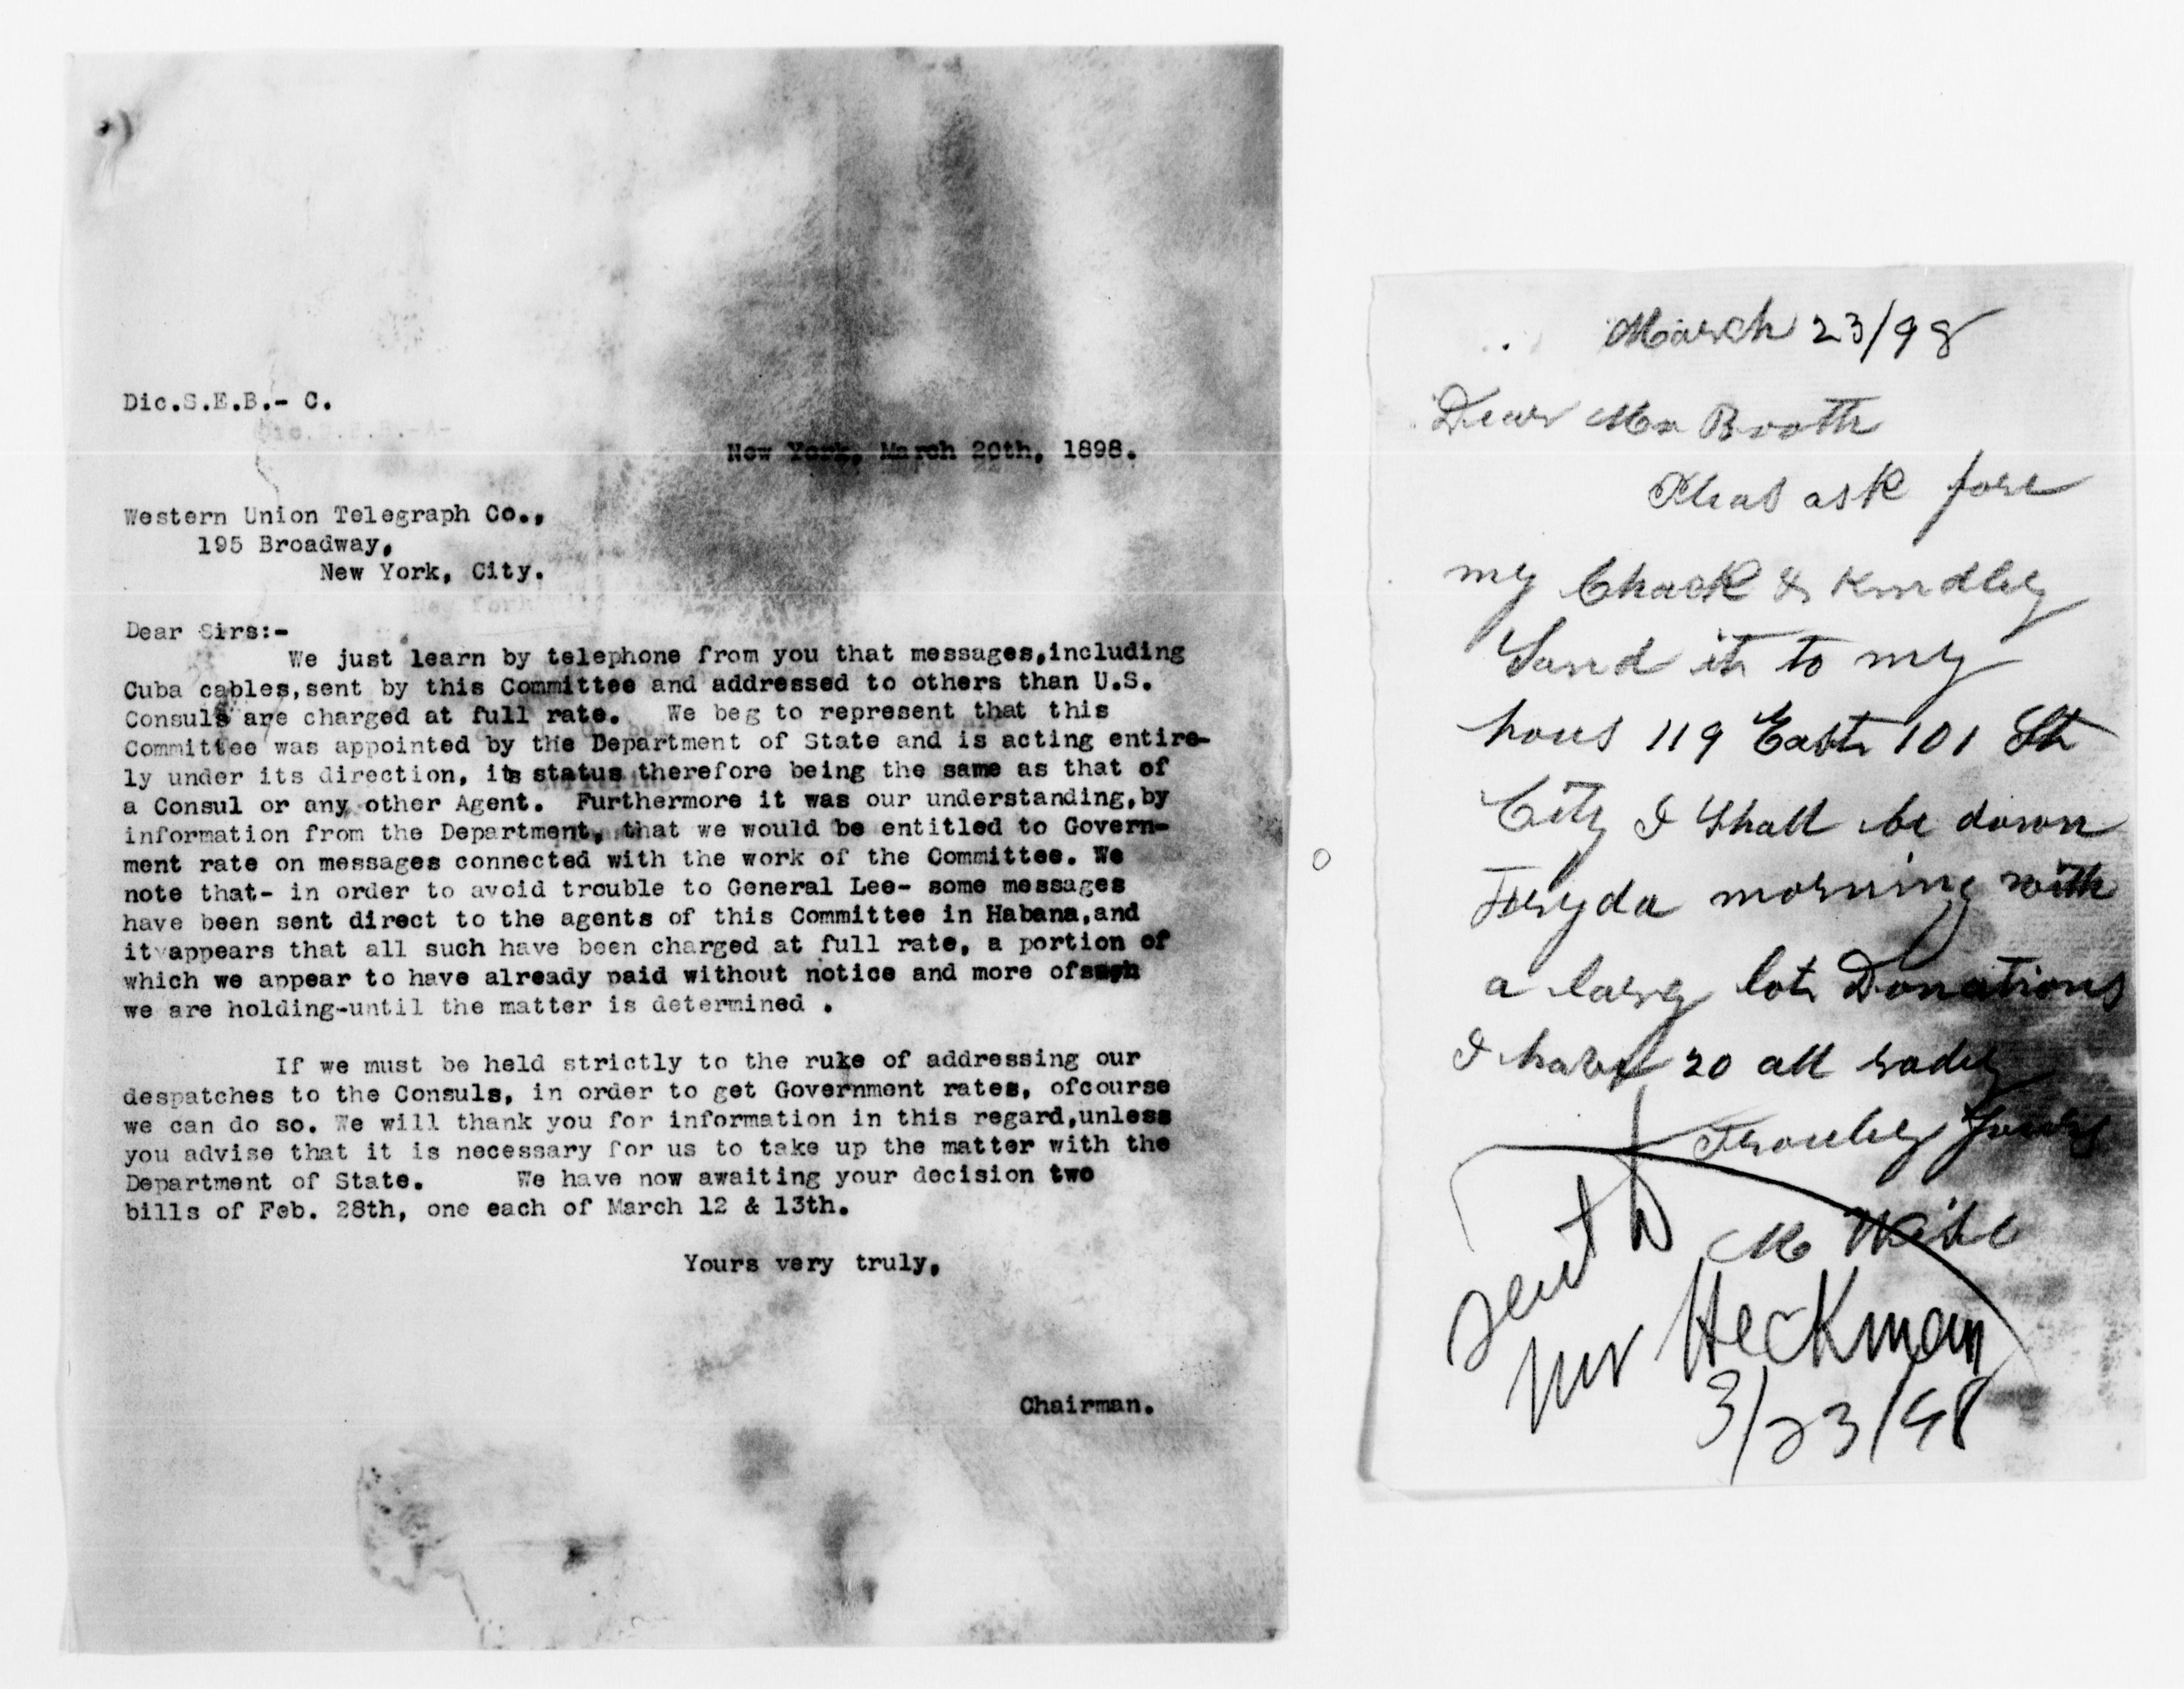 Dic.S.E.B.- C.
New York, March 20th, 1898.
Western Union Telegraph Co.,
195 Broadway,
New York, City.
Dear Sirs:-
We just learn by telephone from you that messages,including
Cuba cables,sent by this Committee and addressed to others than U.S.
Consuls are charged at full rate. We beg to represent that this
Committee was appointed by the Department of State and is acting entire-
ly under its direction, its status therefore being the same as that of
a Consul or any other Agent. Furthermore it was our understanding,by
information from the Department, that we would be entitled to Govern-
ment rate on messages connected with the work of the Committee. We
note that- in order to avoid trouble to General Lee- some messages
have been sent direct to the agents of this Committee in Habana,and
it appears that all such have been charged at full rate, a portion of
which we appear to have already paid without notice and more ofsuch
we are holding-until the matter is determined .
If we must be held strictly to the ruke of addressing our
despatches to the Consuls, in order to get Government rates, ofcourse
we can do so. We will thank you for information in this regard,unless
you advise that it is necessary for us to take up the matter with the
Department of State. We have now awaiting your decision two
bills of Feb. 28th, one each of March 12 & 13th.
Yours very truly,
Chairman.
March 23/98
Dear Mr Booth
Pleas ask fore
my Chack & Kindley
Sand it to my
hous 119 East 101 St
City I Shall be down
morning with
a larg lot Donations
I have 20 all rady
M
sent
Mr Heckman
3/23/98